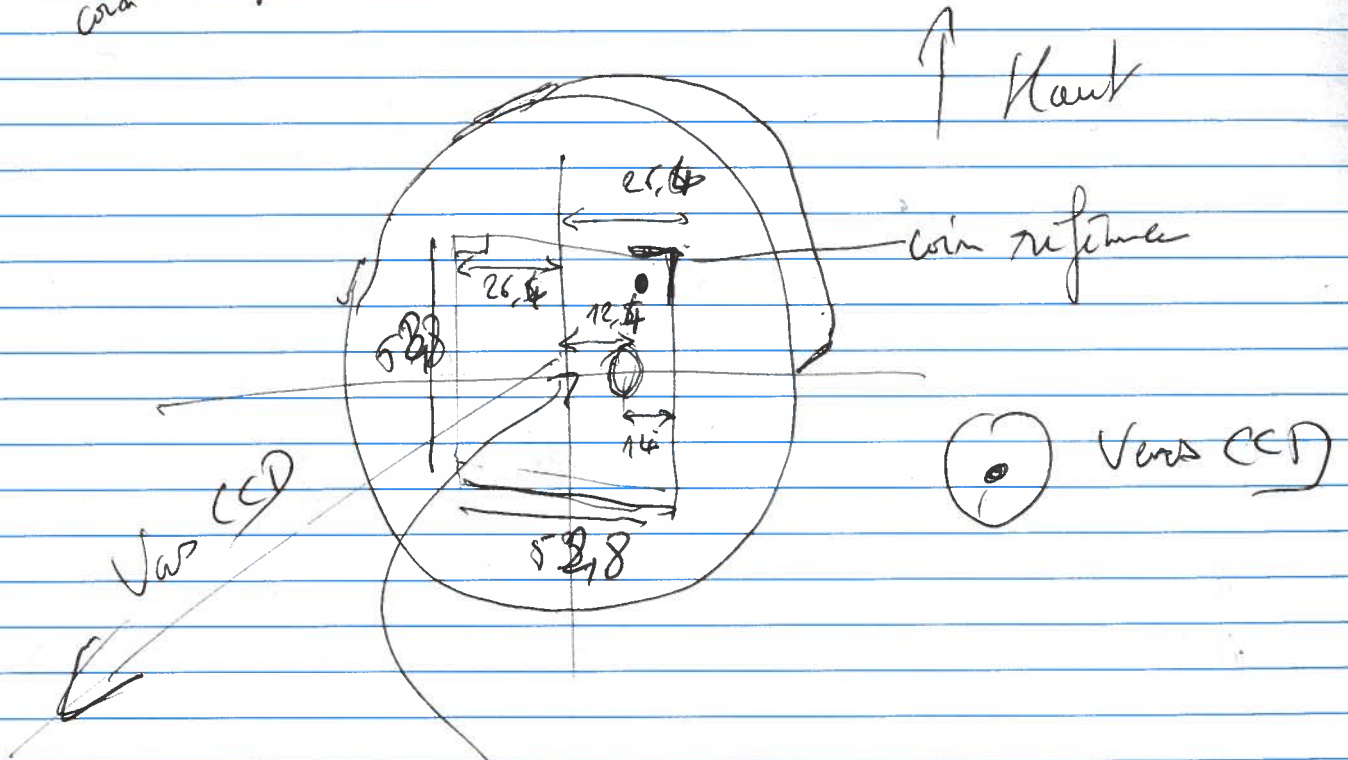 Haut
26,4
coin référence
26,4
12,4
52,8
14
Vers CCD
Vers CCD
52,8